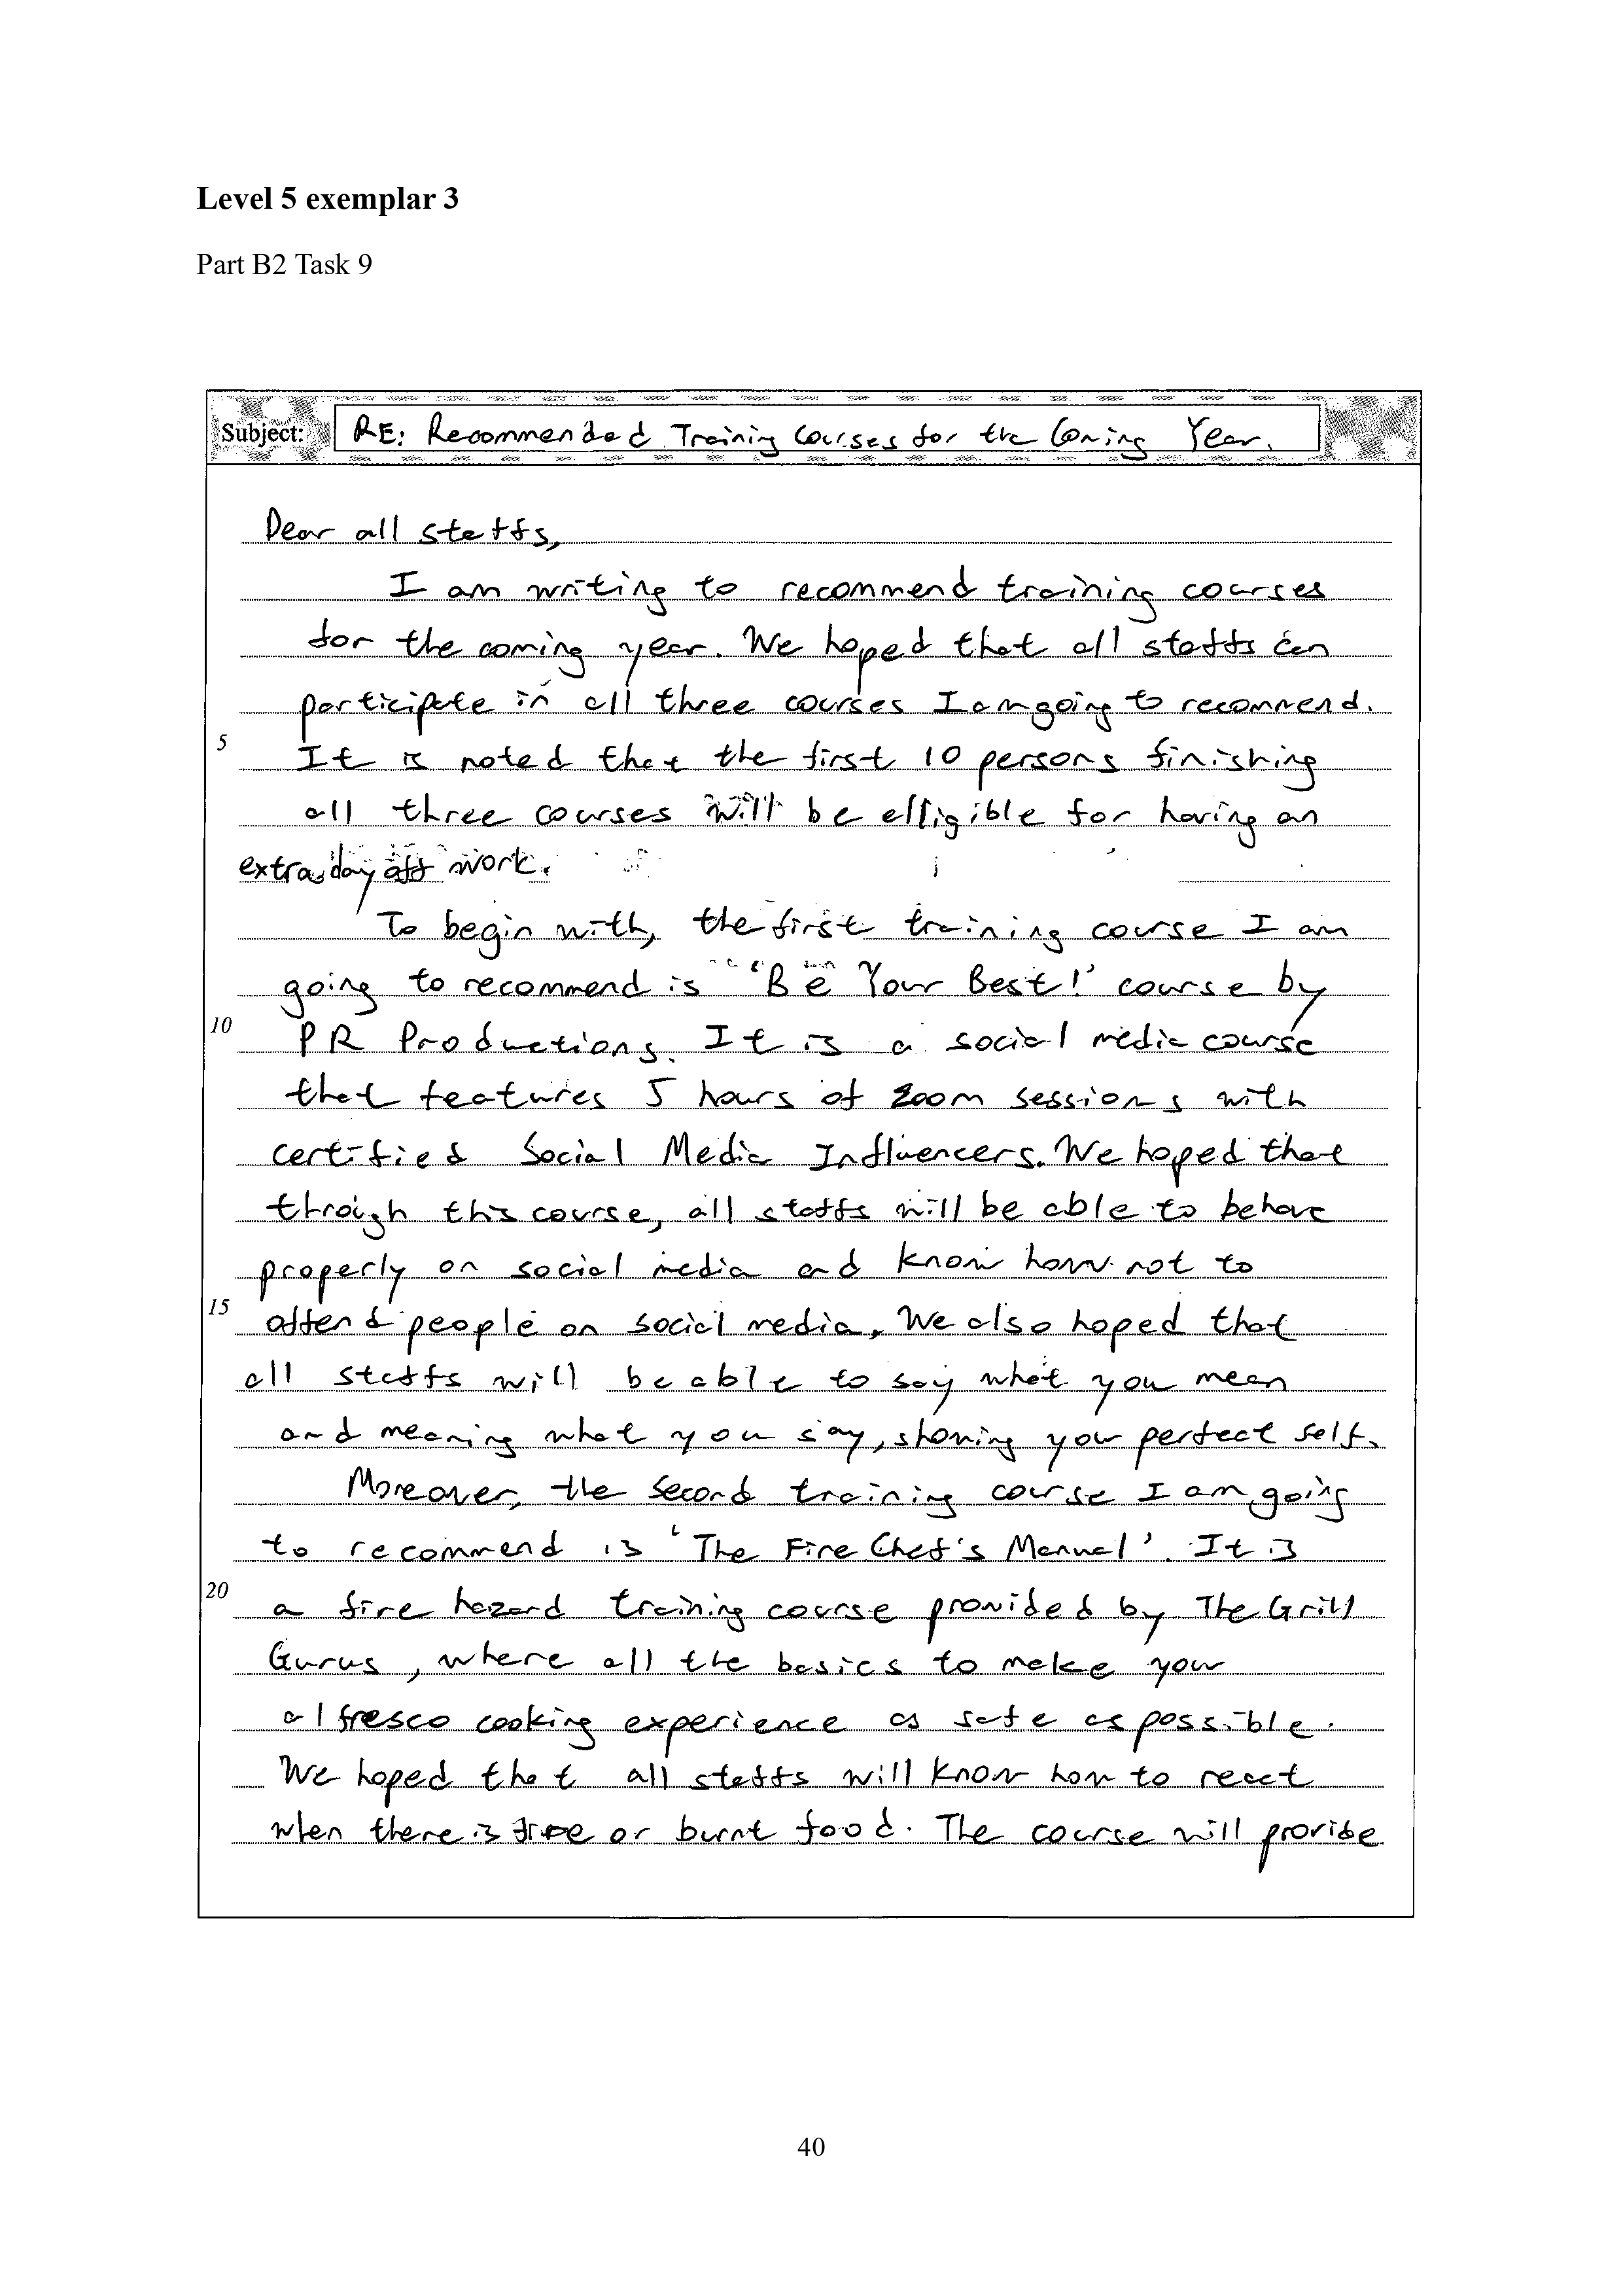 Level 5 exemplar 3
Part B2 Task 9
Subject: RE: Recommended Training Courses for the Coming Year.
Dear all staffs,
I am writing to recommend training courses
for the coming year. We hoped that all staffs can
participate in all three courses I am going to recommend.
5
It is noted that the first 10 persons finishing
all three courses will be elligible for having an
extra day off work.
To begin with, the first training course I am
going to recommend is 'Be Your Best!' course by
10
PR Productions. It is a social media course
that features 5 hours of Zoom sessions with
certified Social Media Influencers. We hoped that
through this course, all staffs will be able to behave
properly on social media and know how not to
15
offend people on social media. We also hoped that
all staffs will be able to say what you mean
and meaning what you say, showing your perfect self.
Moreover, the second training course I am going
to recommend is 'The Fire Chef's Manual'. It is
20
a fire hazard training course provided by The Grill
Gurus, where all the basics to make your
alfresco cooking experience as safe as possible.
We hoped that all staffs will know how to react
when there is fire or burnt food. The course will provide
40